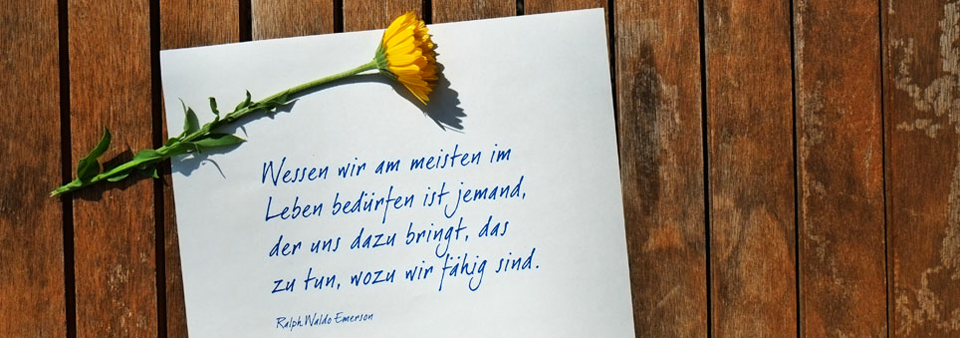 Wessen wir am meisten im
Leben bedürfen ist jemand,
der uns dazu bringt, das
zu tun, wozu wir fähig sind.
Ralph Waldo Emerson